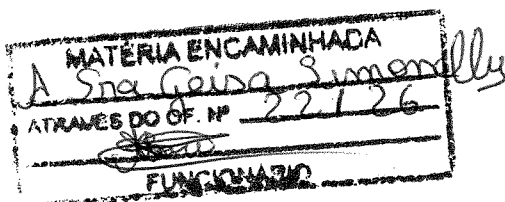 MATÉRIA ENCAMINHADA
A Sra Geisa Simonelly
ATRAVÉS DO OF. Nº 221 26
FUNCIONÁRIO